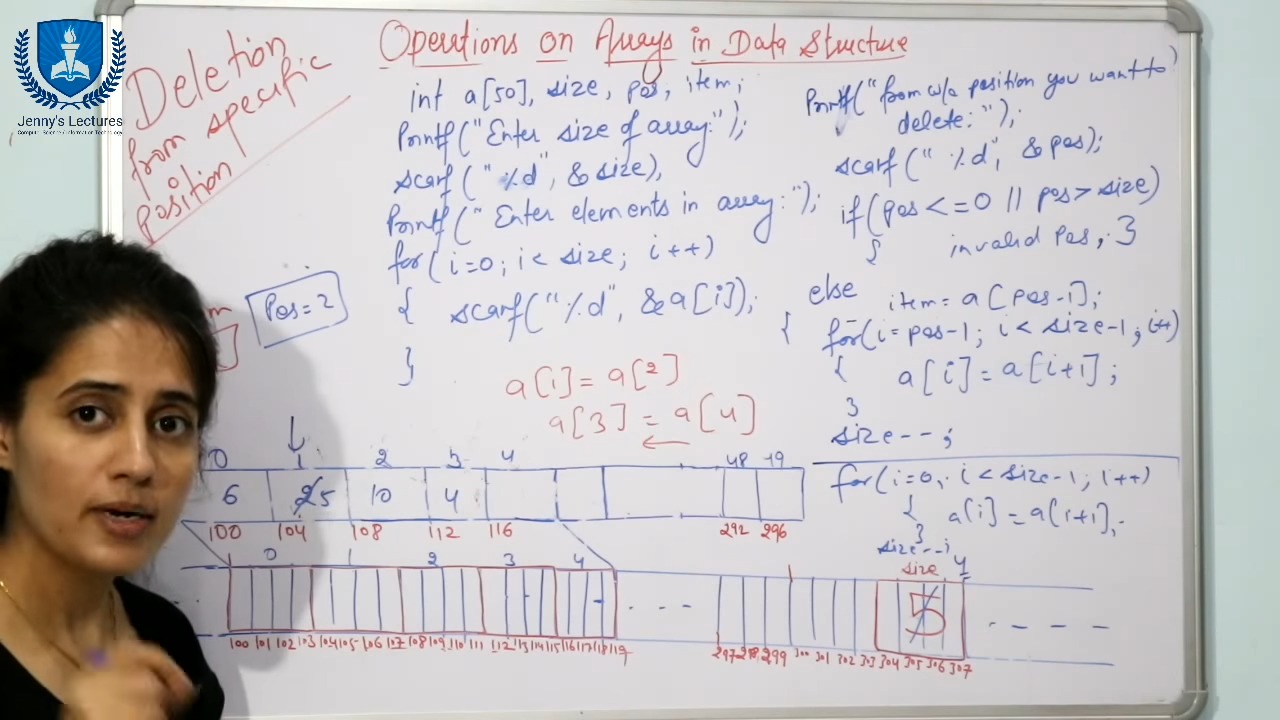 Jenny's Lectures
Computer Science/Information Technology
Deletion
from specific
position
Operations on Arrays in Data Structure
int a[50], size, pos, item;
Printf("Enter size of array:");
scarf("%d", &size),
Printf("Enter elements in array:");
for(i=0; i< size; i++)
{ scarf("%d", &a[i]);
}
a[1]=a[2]
a[3] = a[4]
Printf("from w/c position you want to
delete:");
scarf("%d", &pos);
if(pos <=0 || pos > size)
{ invalid pos, }
else item= a[pos-1];
{ for(i= pos-1; i< size-1; i++)
{ a[i]= a[i+1];
}
size--;
for(i=0, i < size-1; i++)
{ a[i] = a[i+1],
}
size--;
Pos=2
0 1 2 3 4 48 49
6 5 10 4
100 104 108 112 116 292 296
0 1 2 3 4
size 4
5
100 101 102 103 104 105 106 107 108 109 110 111 112 113 114 115 116 117 118 119 297 298 299 300 301 302 303 304 305 306 307